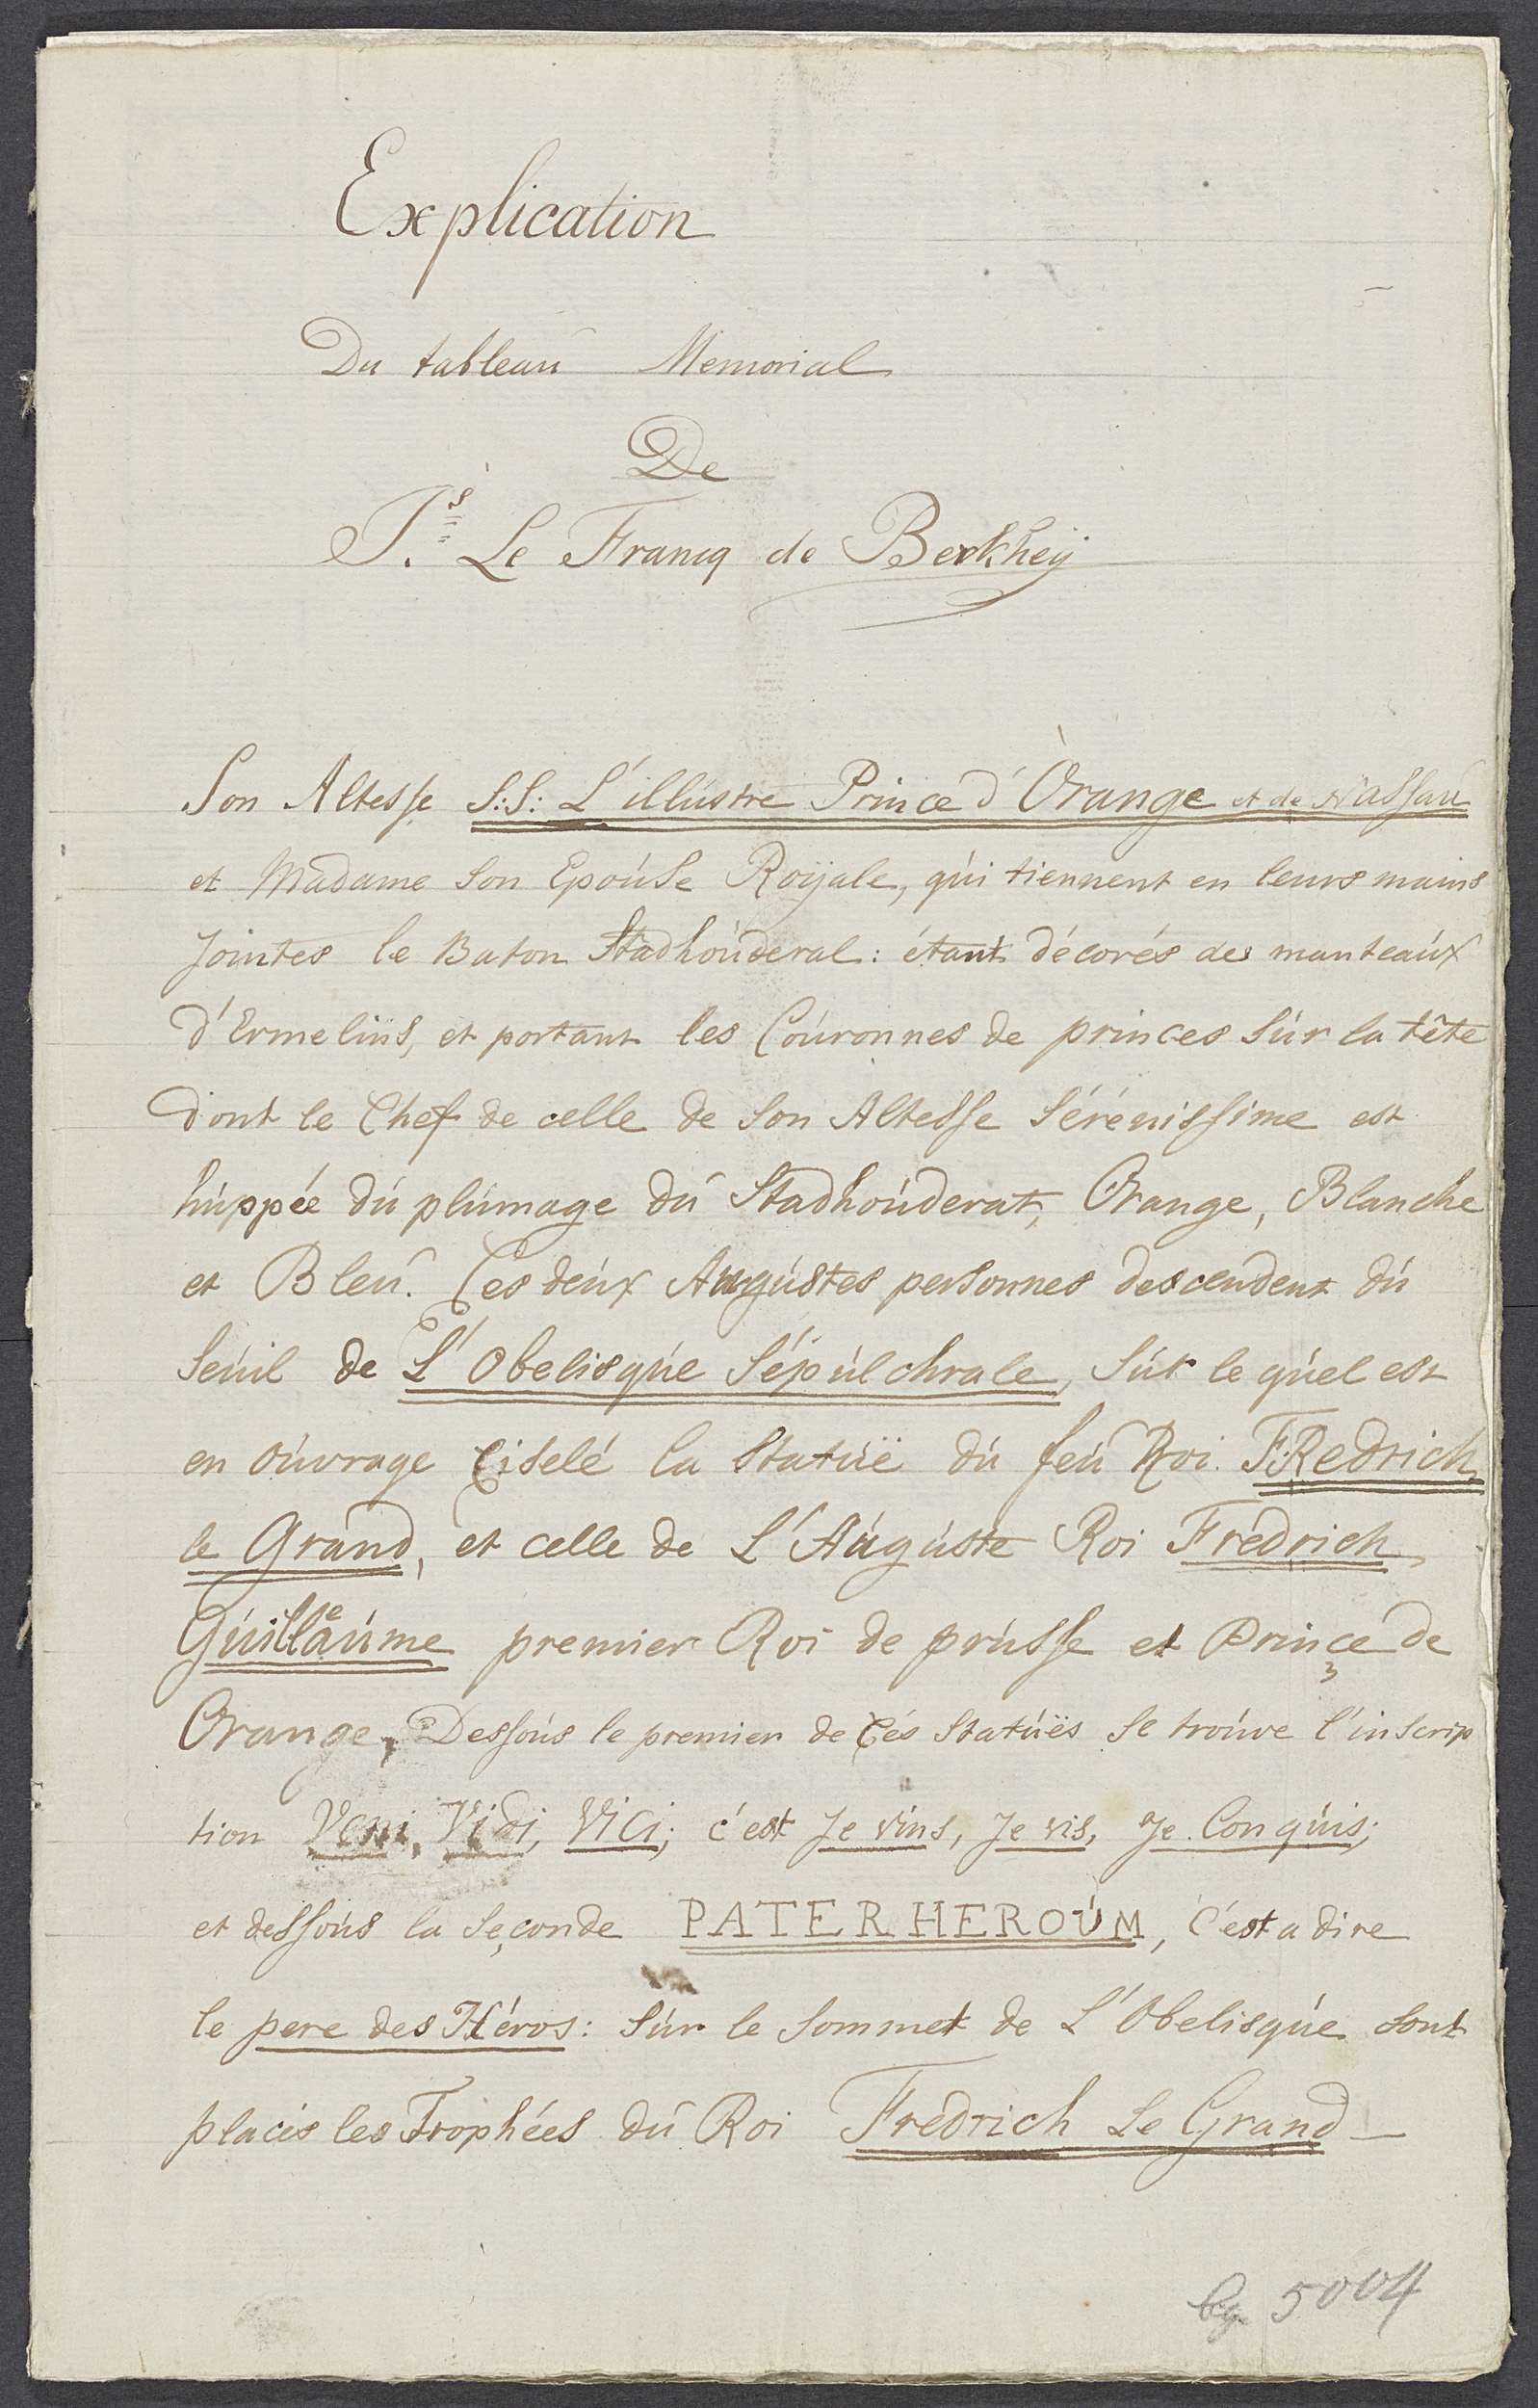 Explication
Du tableau Memorial
De
J.s Le Francq de Berkheÿ
Son Altesse S:S: L'illustre Prince d'Orange et de Nassau
et Madame Son Epouse Roÿale, qui tiennent en leurs mains
Jointes le Baton Stadhouderal: étant décorés des manteaux
d'Ermelins, et portant les Couronnes de princes sur la tête
dont le Chef de celle de Son Altesse Sérénissime est
huppée du plumage du Stadhouderat, Orange, Blanche
et Bleu. Ces deux Augustes personnes descendent du
Seuil de L'Obelisque Sépulchrale, Sur le quel est
en ouvrage Ciselé la Statuë du feu Roi FRedrich
le Grand, et celle de L'Auguste Roi Fredrich
Guilleaume premier Roi de prusse et Prince de
Orange, Dessous le premier de Cés Statuës Se trouve l'inscrip
tion Veni, Vidi, Vici; c'est Je vins, Je vis, Je Conquis;
et dessous la Seconde PATER HEROUM, C'est a dire
le pere des Héros: Sur le Sommet de L'Obelisque sont
placés les Trophées du Roi Fredrich Le Grand
5004